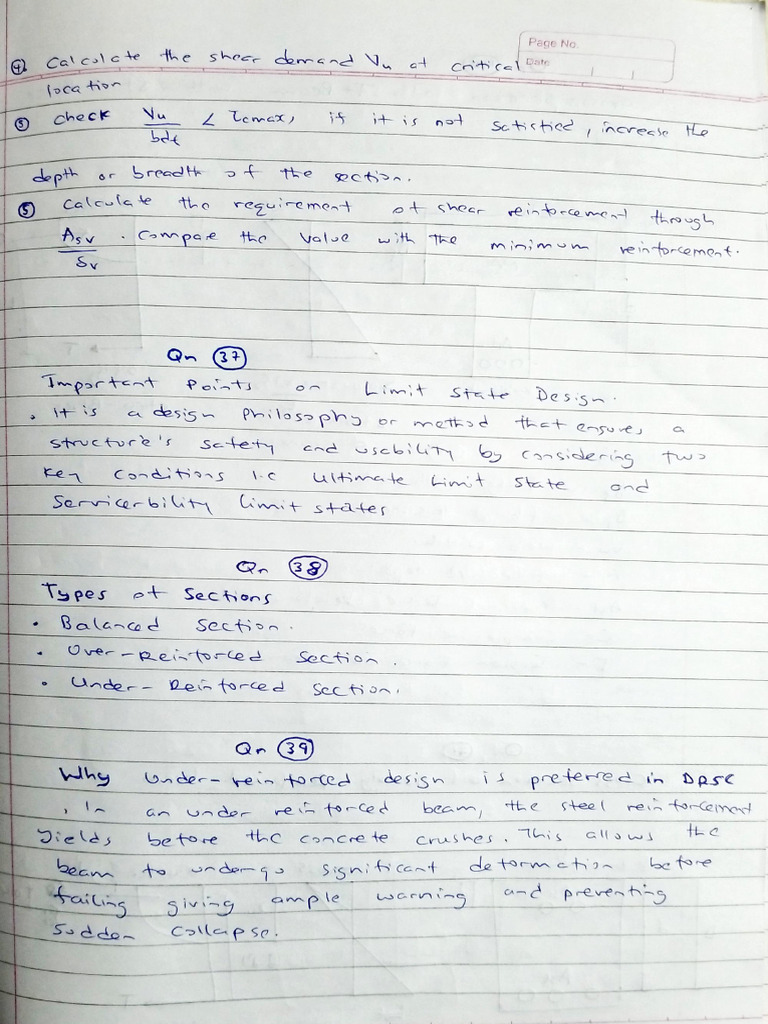 Page No.
Date
④ Calculate the shear demand Vu at critical
location
⑤ check Vu/bdt < τcmax, if it is not satisfied, increase the
depth or breadth of the section.
⑤ Calculate the requirement of shear reinforcement through
Asv/Sv . Compare the value with the minimum reinforcement.
Qn ㊲
Important Points on Limit State Design.
• It is a design Philosophy or method that ensures a
structure's safety and usability by considering two
key conditions i.e Ultimate Limit State and
Servicerbility limit states
Qn ㊳
Types of Sections
• Balanced Section.
• Over-Reinforced Section.
• Under-Reinforced Section.
Qn ㊴
Why under-reinforced design is preferred in DRSC
. In an under reinforced beam, the steel reinforcement
yields before the concrete crushes. This allows the
beam to undergo significant deformation before
failing giving ample warning and preventing
sudden collapse.